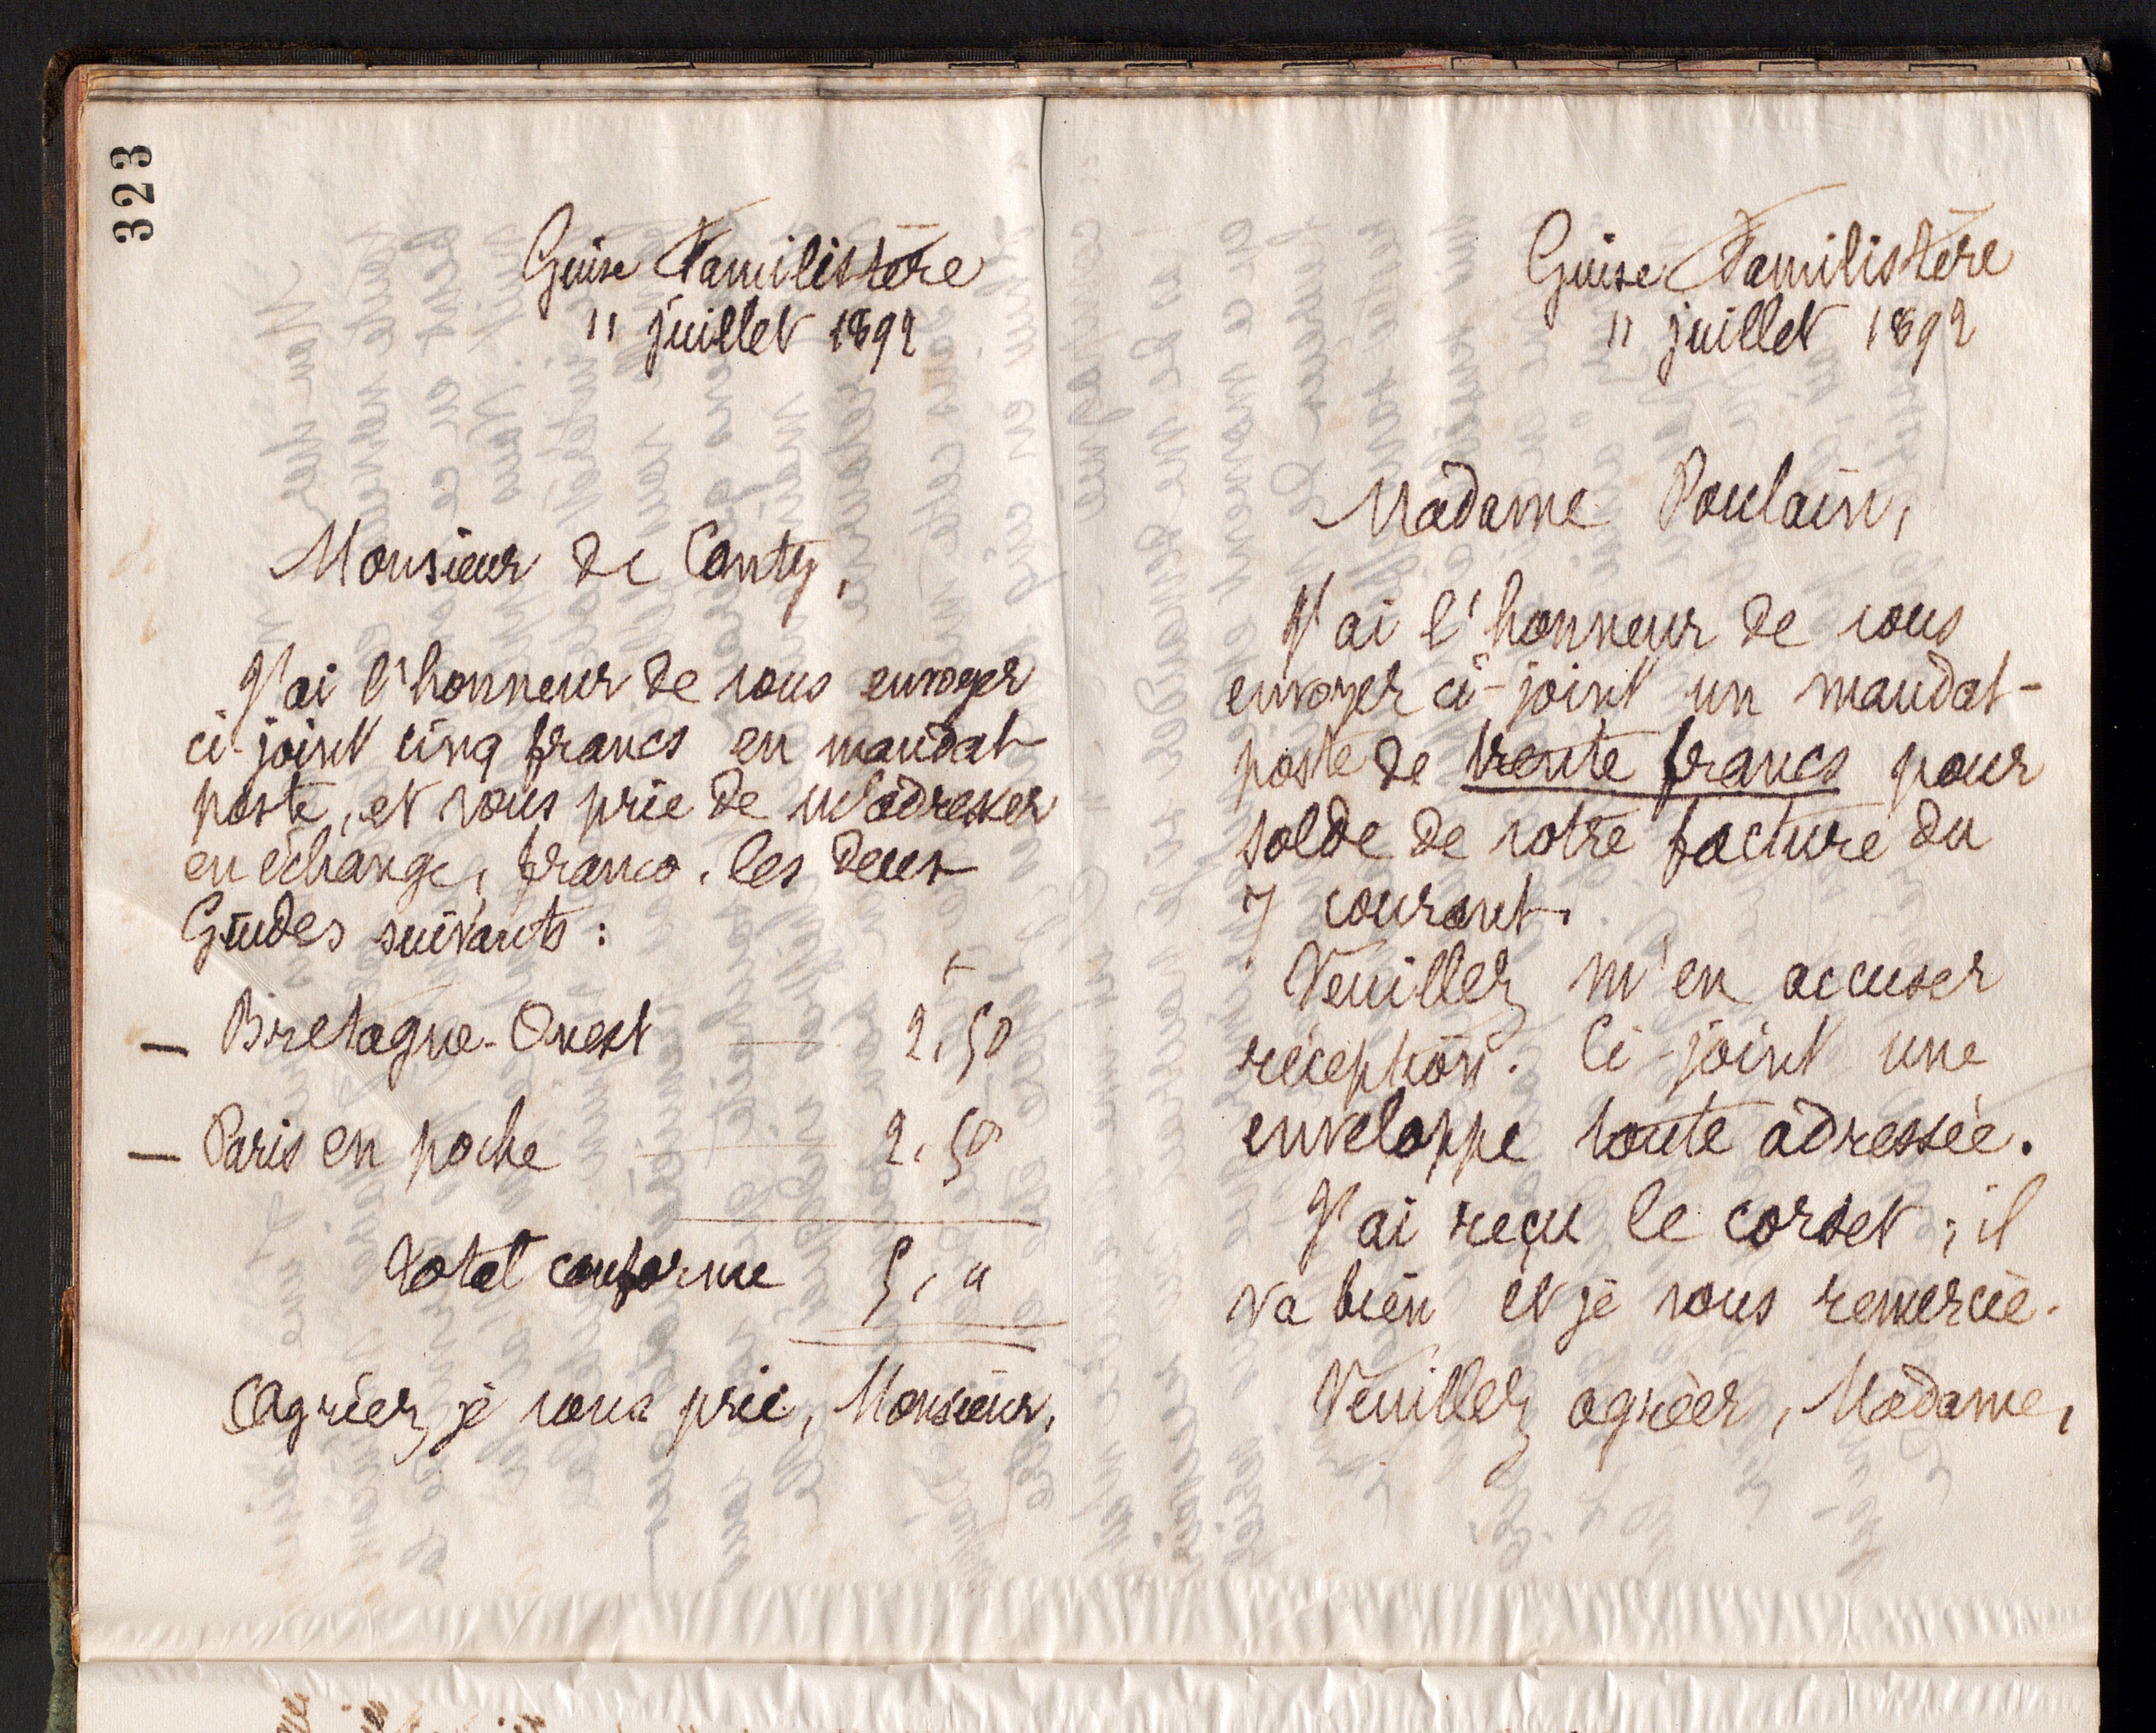 323
Guise Familistère
11 juillet 1892
Monsieur de Conty,
J'ai l'honneur de vous envoyer
ci-joint cinq francs en mandat
poste, et vous prie de m'adresser
en échange, franco, les deux
Guides suivants :
— Bretagne-Ouest — 2,50
— Paris en poche — 2,50
Total conforme 5, "
Agréez, je vous prie, Monsieur,
Guise Familistère
11 juillet 1892
Madame Poulain,
J'ai l'honneur de vous
envoyer ci-joint un mandat-
poste de trente francs pour
solde de votre facture du
7 courant.
Veuillez m'en accuser
réception. Ci-joint une
enveloppe toute adressée.
J'ai reçu le corset ; il
va bien et je vous remercie.
Veuillez agréer, Madame,